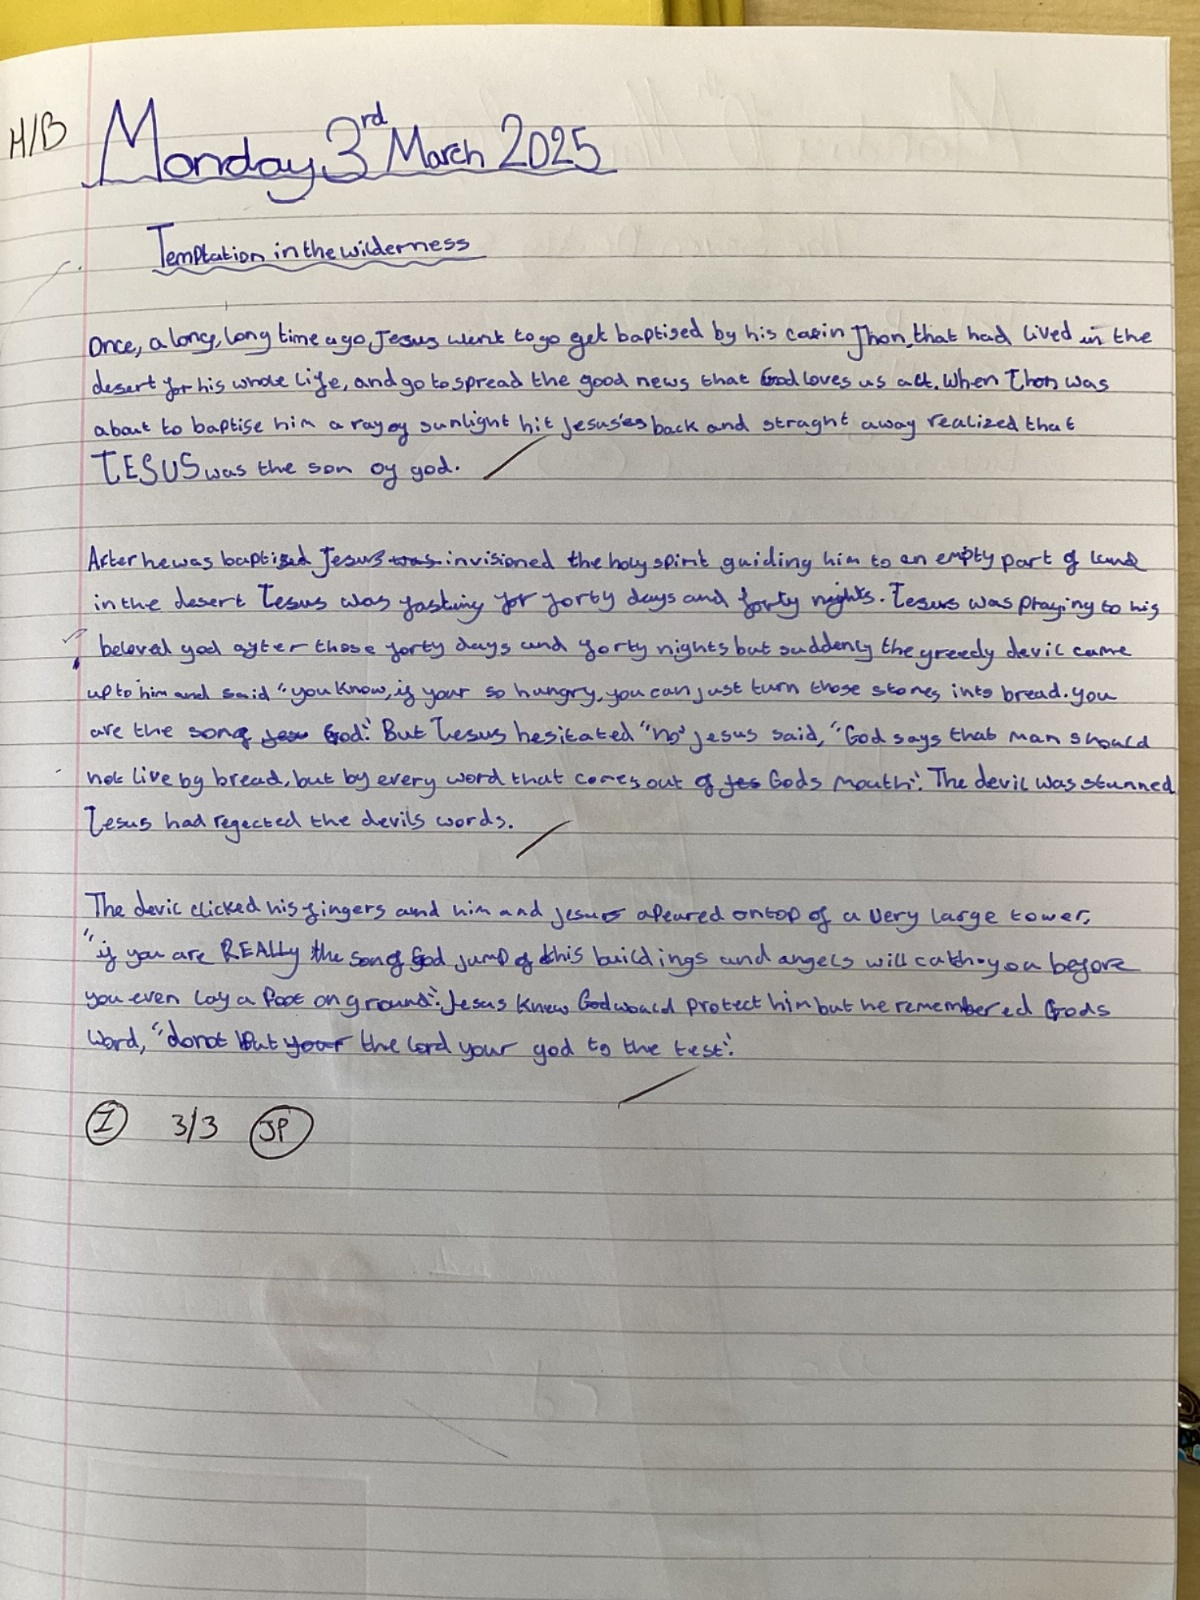 H/B
Monday 3rd March 2025
Temptation in the wilderness
Once, a long, long time ago, Jesus went to go get baptised by his casin Jhon, that had lived in the
desert for his whole life, and go to spread the good news that God loves us all. When Jhon was
about to baptise him a ray of sunlight hit jesus'es back and straght away realized that
JESUS was the son of god.
After he was baptised Jesus was invisioned the holy spirit guiding him to an empty part of land
in the desert Jesus was fasting for forty days and forty nights. Jesus was praying to his
beloved god after those forty days and forty nights but suddenly the greedy devil came
up to him and said "you know, if your so hungry, you can just turn those stones into bread. you
are the son of jesu God." But Jesus hesitated "no" jesus said, "God says that man should
not live by bread, but by every word that comes out of jes Gods mouth". The devil was stunned
Jesus had regected the devils words.
The devil clicked his fingers and him and jesus apeared ontop of a very large tower,
"if you are REALLY the son of God jump of this buildings and angels will catch you before
you even lay a foot on ground". Jesus knew God would protect him but he remembered Gods
word, "do not put your the lord your god to the test".
I 3/3 JP